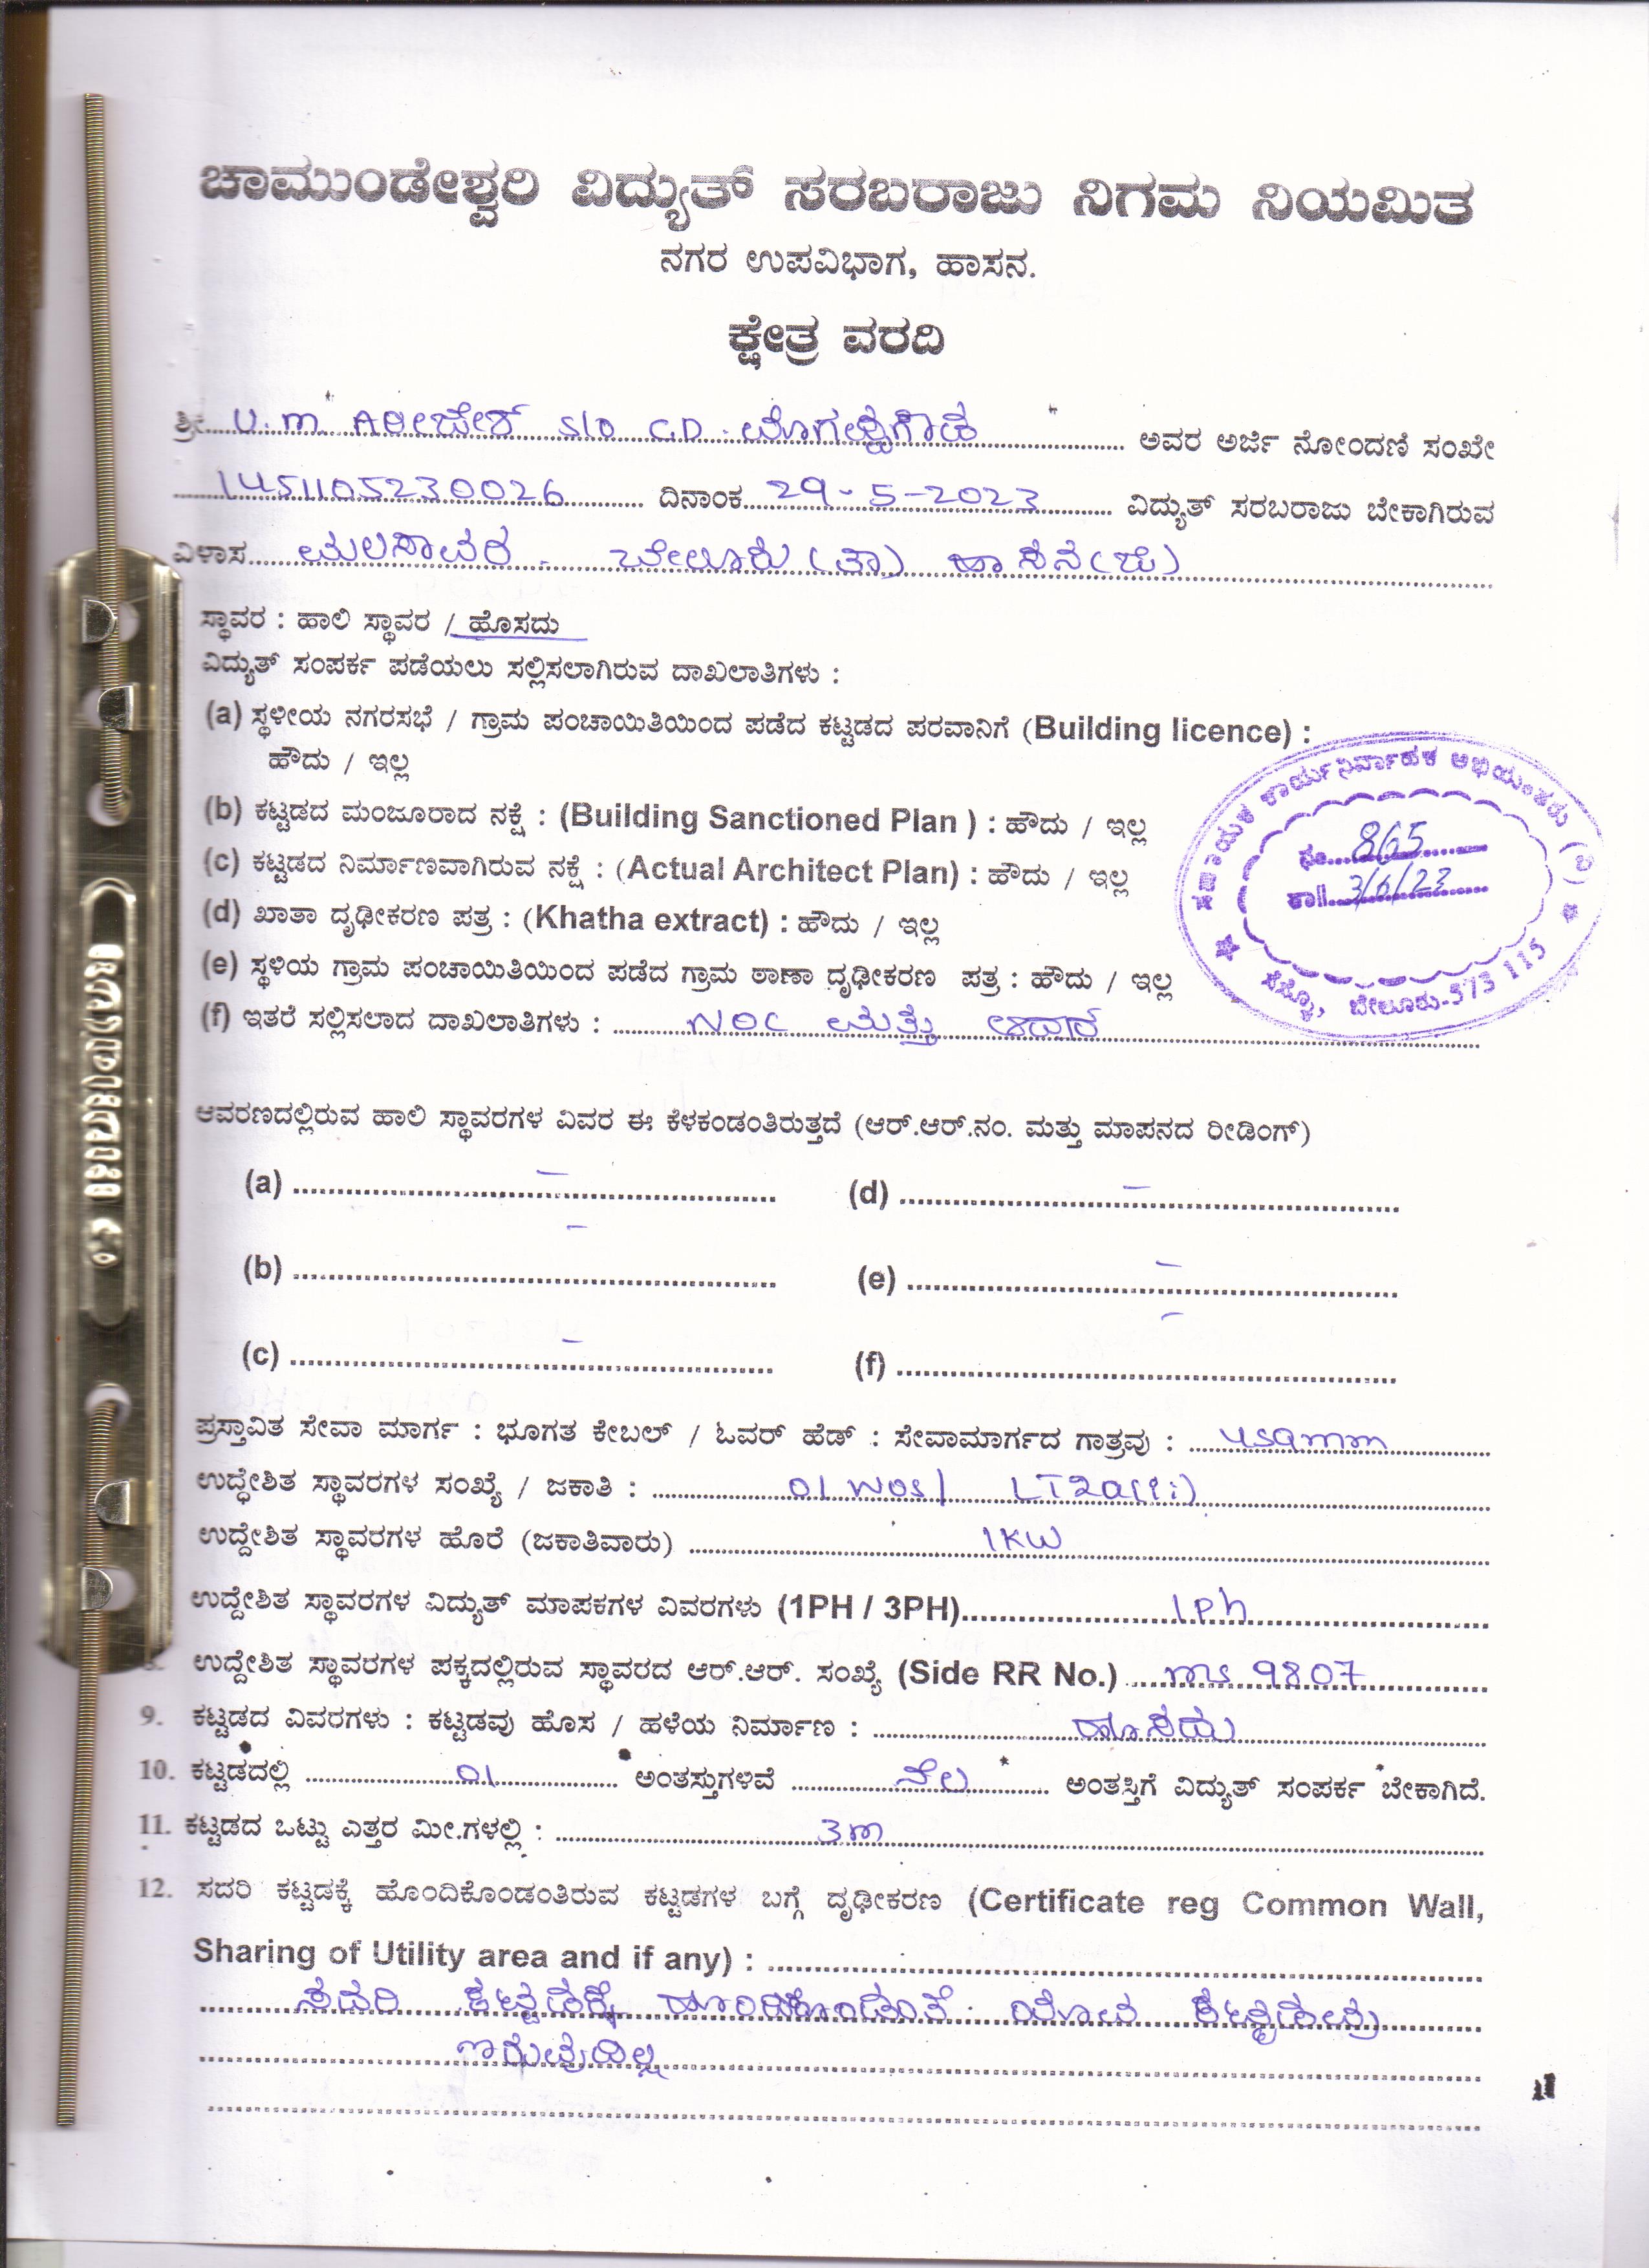 ಚಾಮುಂಡೇಶ್ವರಿ ವಿದ್ಯುತ್ ಸರಬರಾಜು ನಿಗಮ ನಿಯಮಿತ
ನಗರ ಉಪವಿಭಾಗ, ಹಾಸನ.
ಕ್ಷೇತ್ರ ವರದಿ
ಶ್ರೀ. U.m S/o C.D. ಅವರ ಅರ್ಜಿ ನೋಂದಣಿ ಸಂಖೇ
1451105230026 ದಿನಾಂಕ 29-5-2023 ವಿದ್ಯುತ್ ಸರಬರಾಜು ಬೇಕಾಗಿರುವ
ವಿಳಾಸ ಮಲಸಾವರ - ಬೇಲೂರು (ತಾ) ಹಾಸನ (ಜಿ)
ಸ್ಥಾವರ : ಹಾಲಿ ಸ್ಥಾವರ / ಹೊಸದು
ವಿದ್ಯುತ್ ಸಂಪರ್ಕ ಪಡೆಯಲು ಸಲ್ಲಿಸಲಾಗಿರುವ ದಾಖಲಾತಿಗಳು :
(a) ಸ್ಥಳೀಯ ನಗರಸಭೆ / ಗ್ರಾಮ ಪಂಚಾಯಿತಿಯಿಂದ ಪಡೆದ ಕಟ್ಟಡದ ಪರವಾನಿಗೆ (Building licence) :
ಹೌದು / ಇಲ್ಲ
(b) ಕಟ್ಟಡದ ಮಂಜೂರಾದ ನಕ್ಷೆ : (Building Sanctioned Plan ) : ಹೌದು / ಇಲ್ಲ
(c) ಕಟ್ಟಡದ ನಿರ್ಮಾಣವಾಗಿರುವ ನಕ್ಷೆ : (Actual Architect Plan) : ಹೌದು / ಇಲ್ಲ
(d) ಖಾತಾ ದೃಢೀಕರಣ ಪತ್ರ : (Khatha extract) : ಹೌದು / ಇಲ್ಲ
(e) ಸ್ಥಳಿಯ ಗ್ರಾಮ ಪಂಚಾಯಿತಿಯಿಂದ ಪಡೆದ ಗ್ರಾಮ ಠಾಣಾ ದೃಢೀಕರಣ ಪತ್ರ : ಹೌದು / ಇಲ್ಲ
(f) ಇತರೆ ಸಲ್ಲಿಸಲಾದ ದಾಖಲಾತಿಗಳು : NOC ಮತ್ತು ಆಧಾರ
ಸಹಾಯಕ ಕಾರ್ಯನಿರ್ವಾಹಕ ಅಭಿಯಂತರು (ವಿ)
ನಂ. 865
ತಾ|| 3/6/23
ಸೆಸ್ಕೊ, ಬೇಲೂರು-573 115
ಆವರಣದಲ್ಲಿರುವ ಹಾಲಿ ಸ್ಥಾವರಗಳ ವಿವರ ಈ ಕೆಳಕಂಡಂತಿರುತ್ತದೆ (ಆರ್.ಆರ್.ನಂ. ಮತ್ತು ಮಾಪನದ ರೀಡಿಂಗ್)
(a) – (d) –
(b) – (e) –
(c) – (f) –
ಪ್ರಸ್ತಾವಿತ ಸೇವಾ ಮಾರ್ಗ : ಭೂಗತ ಕೇಬಲ್ / ಓವರ್ ಹೆಡ್ : ಸೇವಾಮಾರ್ಗದ ಗಾತ್ರವು : 4sqmm
ಉದ್ಧೇಶಿತ ಸ್ಥಾವರಗಳ ಸಂಖ್ಯೆ / ಜಕಾತಿ : 01 Nos/ LT2a(ii)
ಉದ್ದೇಶಿತ ಸ್ಥಾವರಗಳ ಹೊರೆ (ಜಕಾತಿವಾರು) 1KW
ಉದ್ದೇಶಿತ ಸ್ಥಾವರಗಳ ವಿದ್ಯುತ್ ಮಾಪಕಗಳ ವಿವರಗಳು (1PH / 3PH) 1Ph
ಉದ್ದೇಶಿತ ಸ್ಥಾವರಗಳ ಪಕ್ಕದಲ್ಲಿರುವ ಸ್ಥಾವರದ ಆರ್.ಆರ್. ಸಂಖ್ಯೆ (Side RR No.) ms 9807
9. ಕಟ್ಟಡದ ವಿವರಗಳು : ಕಟ್ಟಡವು ಹೊಸ / ಹಳೆಯ ನಿರ್ಮಾಣ : ಹೊಸದು
10. ಕಟ್ಟಡದಲ್ಲಿ 01 ಅಂತಸ್ತುಗಳಿವೆ ನೆಲ ಅಂತಸ್ತಿಗೆ ವಿದ್ಯುತ್ ಸಂಪರ್ಕ ಬೇಕಾಗಿದೆ.
11. ಕಟ್ಟಡದ ಒಟ್ಟು ಎತ್ತರ ಮೀ.ಗಳಲ್ಲಿ : 3m
12. ಸದರಿ ಕಟ್ಟಡಕ್ಕೆ ಹೊಂದಿಕೊಂಡಂತಿರುವ ಕಟ್ಟಡಗಳ ಬಗ್ಗೆ ದೃಢೀಕರಣ (Certificate reg Common Wall,
Sharing of Utility area and if any) :
ಸದರಿ ಕಟ್ಟಡಕ್ಕೆ ಹೊಂದಿಕೊಂಡಂತೆ ಯಾವ